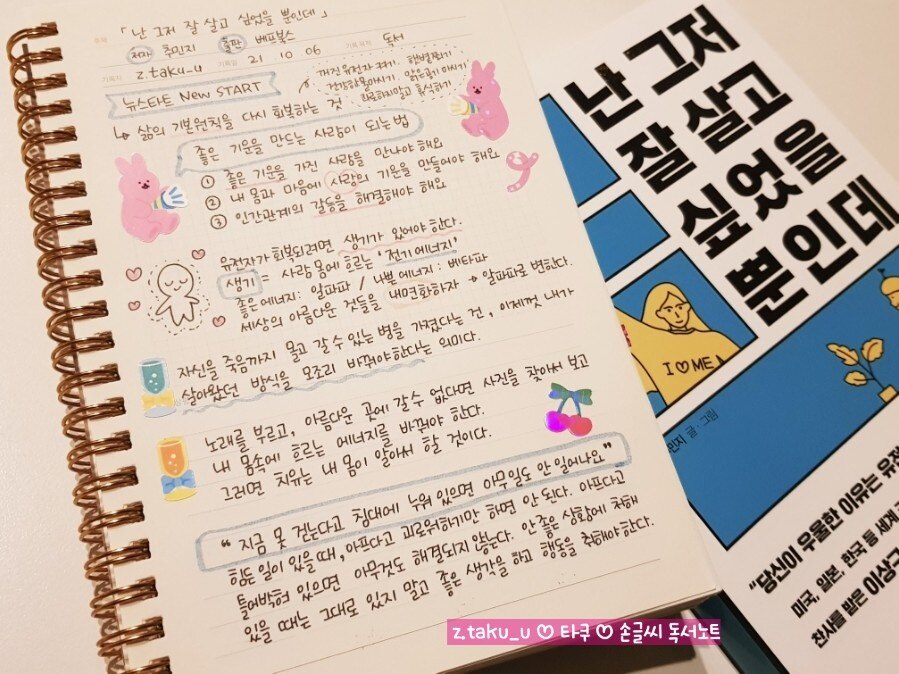 제목 「난 그저 잘 살고 싶었을 뿐인데」
저자 추민지 출판 베프북스
기록자 z.taku_u 기록일 21 10 06 기록목적 독서
뉴스타트 New START
꺼진 유전자 켜기, 햇빛쬐기
건강한 물마시기, 맑은공기 마시기
피로하지말고 휴식하기
↳ 삶의 기본원칙을 다시 회복하는 것
좋은 기운을 만드는 사람이 되는 법
① 좋은 기운을 가진 사람을 만나야 해요
② 내 몸과 마음에 사랑의 기운을 만들어야 해요
③ 인간관계의 갈등을 해결해야 해요
유전자가 회복되려면 생기가 있어야 한다.
생기 = 사람 몸에 흐르는 '전기에너지'
좋은에너지: 알파파 / 나쁜에너지: 베타파
세상의 아름다운 것들을 내면화하자 → 알파파로 변한다.
자신을 죽음까지 몰고 갈 수 있는 병을 가졌다는 건, 이제껏 내가
살아왔던 방식을 모조리 바꿔야한다는 의미다.
노래를 부르고, 아름다운 곳에 갈 수 없다면 사진을 찾아서 보고
내 몸속에 흐르는 에너지를 바꿔야 한다.
그러면 치유는 내 몸이 알아서 할 것이다.
“ 지금 못 걷는다고 침대에 누워 있으면 아무일도 안 일어나요”
힘든 일이 있을 때, 아프다고 괴로워하기만 하면 안 된다. 아프다고
틀어박혀 있으면 아무것도 해결되지 않는다. 안 좋은 상황에 처해
있을 때는 그대로 있지 말고 좋은 생각을 하고 행동을 취해야 한다.
z.taku_u ♡ 타쿠 ♡ 손글씨 독서노트
난 그저
잘 살고
싶었을
뿐인데
I ♡ ME
민지 글·그림
“당신이 우울한 이유는 유전
미국, 일본, 한국 등 세계
찬사를 받은 이상구